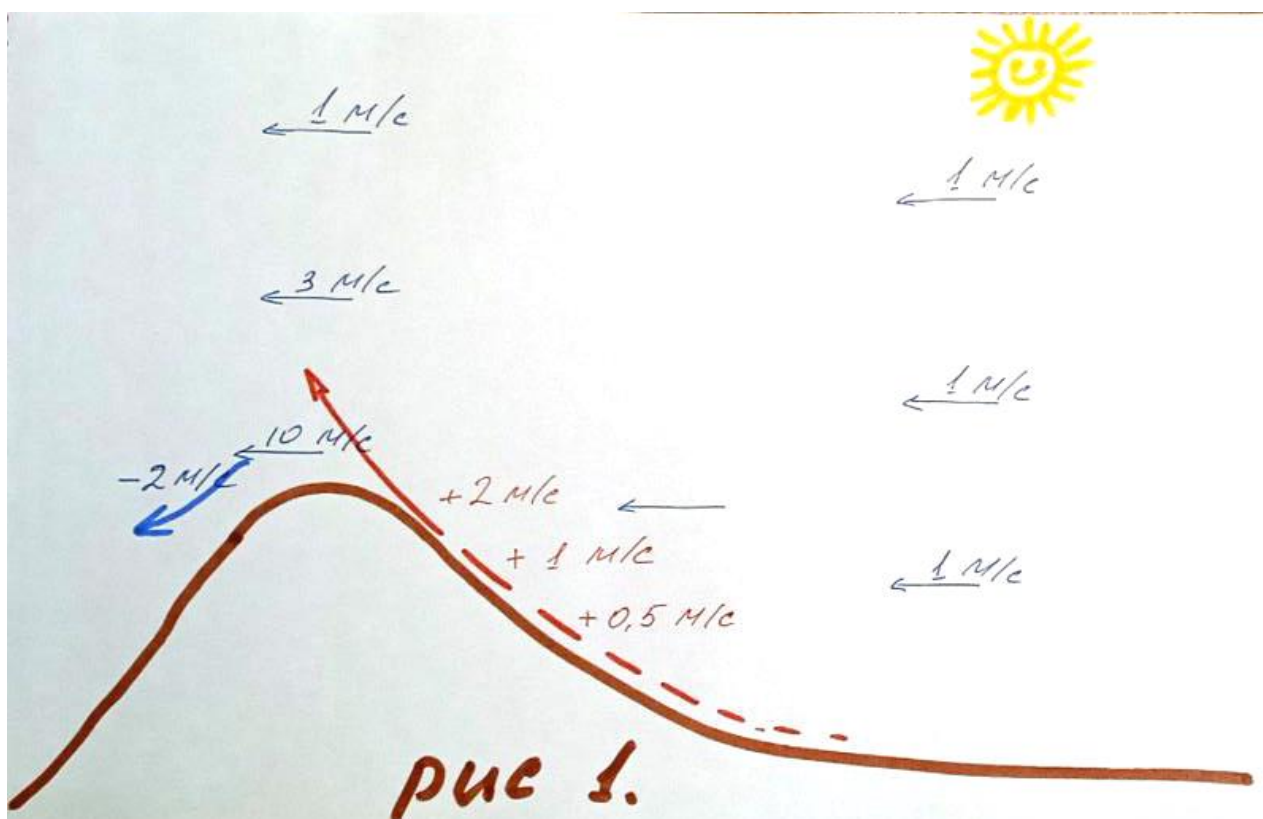 1 м/с
1 м/с
3 м/с
1 м/с
10 м/с
-2 м/с
+2 м/с
+ 1 м/с
1 м/с
+0,5 м/с
рис 1.